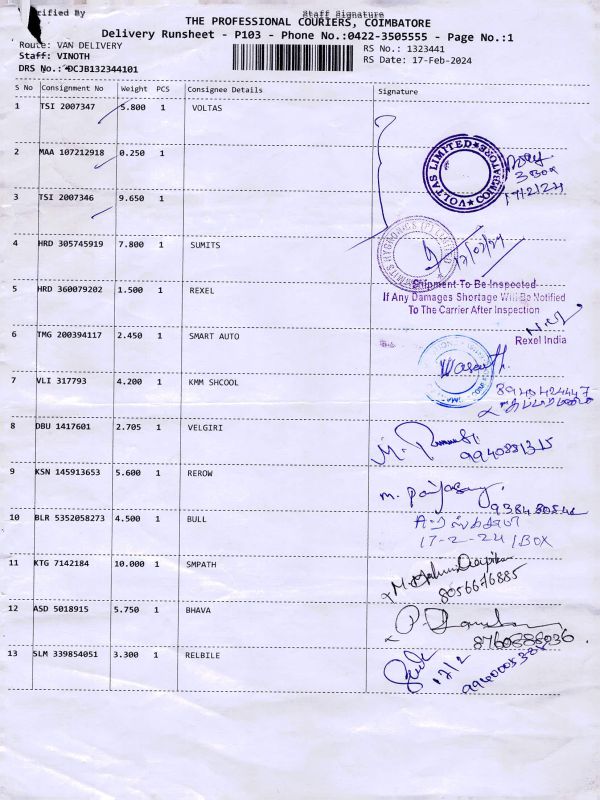 rified By
Staff Signature
THE PROFESSIONAL COURIERS, COIMBATORE
Delivery Runsheet - P103 - Phone No.:0422-3505555 - Page No.:1
Route: VAN DELIVERY
RS No.: 1323441
Staff: VINOTH
RS Date: 17-Feb-2024
DRS No.: DCJB132344101
S No Consignment No Weight PCS Consignee Details Signature
1 TSI 2007347 5.800 1 VOLTAS
2 MAA 107212918 0.250 1
VOLTAS LIMITED COIMBATORE
3 BOX
17/2/24
3 TSI 2007346 9.650 1
4 HRD 305745919 7.800 1 SUMITS
SUMITS HYGRONICS (P) LIMITED
17/02/24
5 HRD 360079202 1.500 1 REXEL
Shipment To Be Inspected
If Any Damages Shortage Will Be Notified
To The Carrier After Inspection
Rexel India
6 TMG 200394117 2.450 1 SMART AUTO
7 VLI 317793 4.200 1 KMM SHCOOL
8 DBU 1417601 2.705 1 VELGIRI
9940881315
9 KSN 145913653 5.600 1 REROW
10 BLR 5352058273 4.500 1 BULL
17-2-24 1BOX
11 KTG 7142184 10.000 1 SMPATH
8056676885
12 ASD 5018915 5.750 1 BHAVA
13 SLM 339854051 3.300 1 RELBILE
17/2